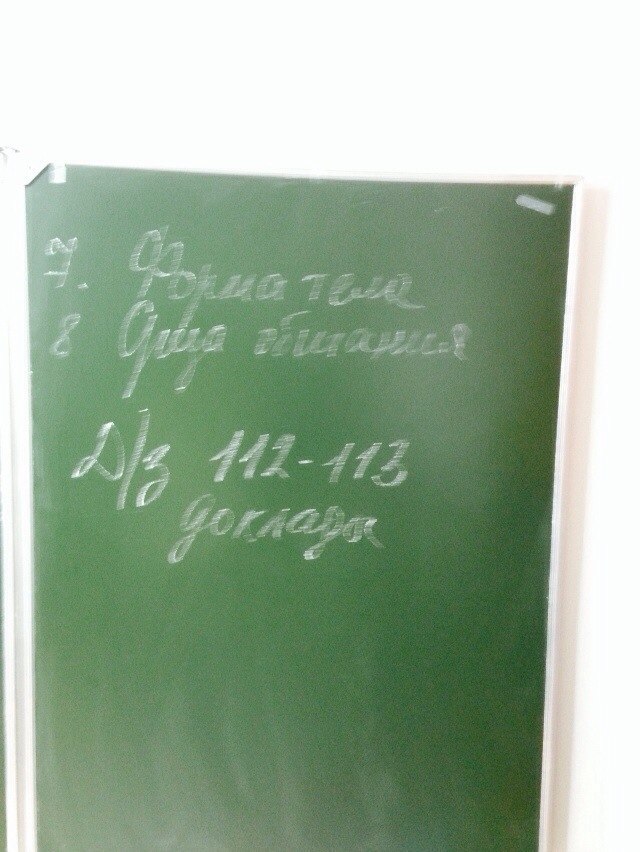 7. Форма тела
8 Среда обитания
Д/з 112-113
доклады